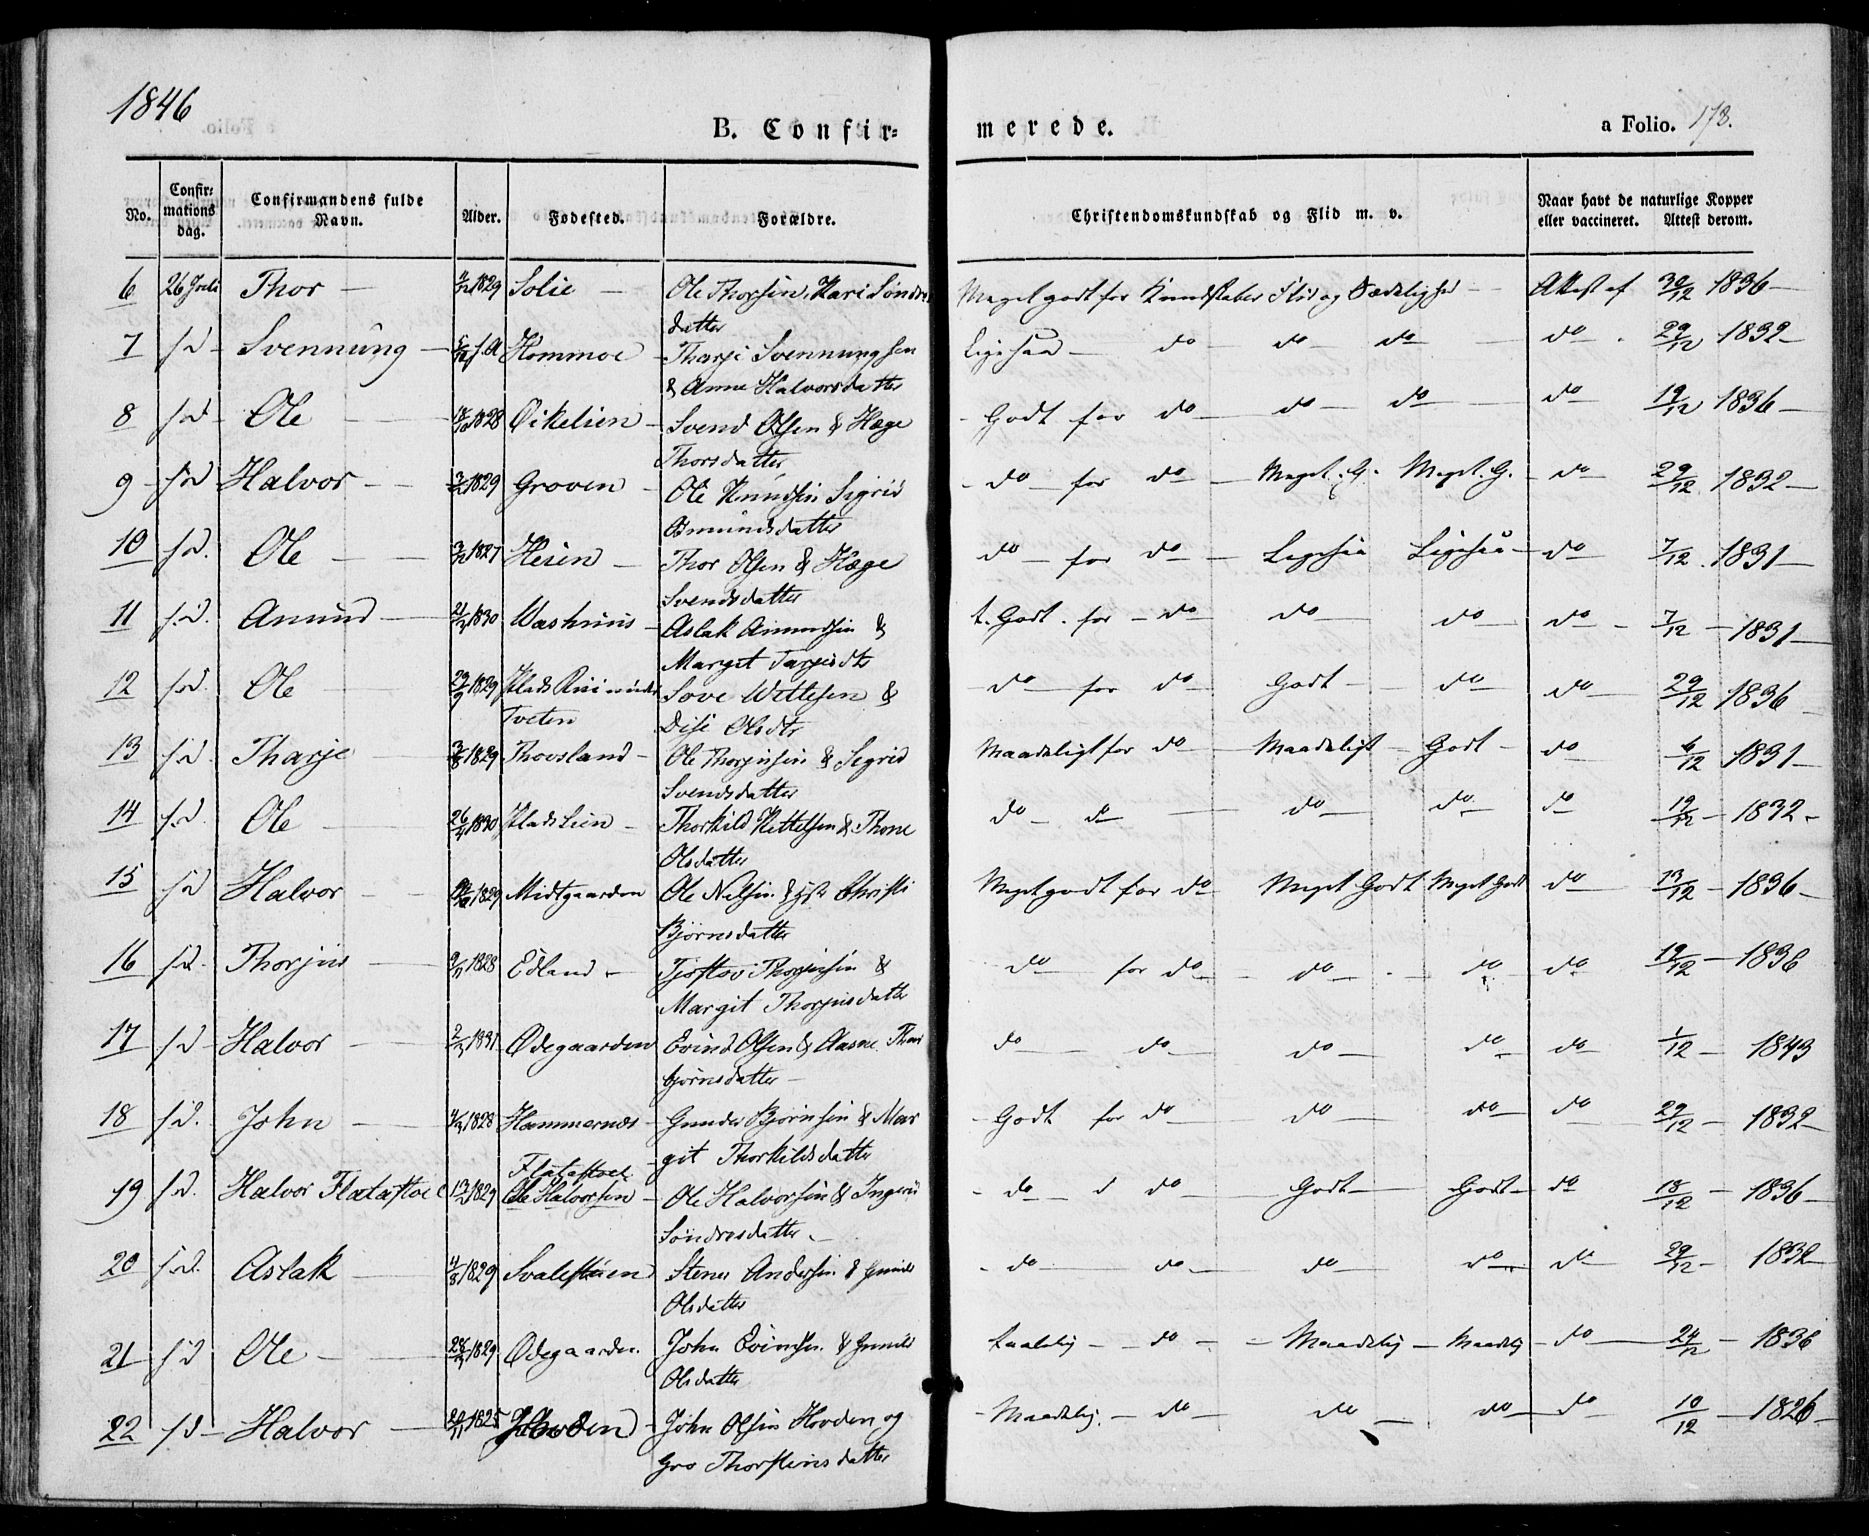 1846
B. Confir=
merede.
a Folio. 178.
No.
Confir=
mations
dag.
Confirmandens fulde
Navn.
Alder.
Fødested.
Forældre.
Christendomskundskab og Flid m. v.
Naar havt de naturlige Kopper
eller vaccineret. Attest derom.
6 26 Juli Thor 1829 Solie Ole Thorsen, Kari Søndre
datter
Meget godt for Kundskaber Flid og Sædelighed Attest af 30/12 1836
7 sd Svennung Hommoe Tharje Svennungsen
& Anne Halvorsdatter
Ligesaa do do do do 29/12 1832
8 sd Ole 1828 Øikelien Svend Olsen & Hæge
Thorsdatter
Godt for do do do do 19/12 1836
9 sd Halvor 1829 Groven Ole Knudsen Sigrid
Amundsdatter
do for do Meget. G. Meget. G. do 29/12 1832
10 sd. Ole 1827 Heien Thor Olsen & Hæge
Svendsdatter
do for do Ligesaa Ligesaa do 7/12 1831
11 s.d. Amund 21/3 1830 Aslak Amundsen &
Margit Tarjeisdtr
t. Godt for do do do do 7/12 1831
12 sd. Ole 29/9 1829 Plads under
Tveten
Sove Wetlesen &
Disi Olsdtr
do for do Godt do do 29/12 1836
13 s.d. Tharje 1829 Thovsland Ole Thorjusen & Sigrid
Svendsdatter
Maadeligt for do Maadeligt Godt do 6/12 1831
14 s.d. Ole 1830 Plads Lien Thorkild Kittelsen & Thone
Olsdatter
do do do do do 19/12 1832
15 sd Halvor 1829 Midtgaarden Ole Nelsen & Christi
Bjørnsdatter
Meget godt for do Meget Godt Meget Godt do 13/12 1836
16 sd. Thorjus 9/11 1828 Edland Tjøstov Thorjusen &
Margit Thorjusdatte
do for do do do do 19/12 1836
17 sd Halvor 2/3 1831 Ødegaarden Evind Olsen & Aasne Thor
bjørnsdatter
do do do do do 1/12 1843
18 sd. John 4/3 1828 Hammernæs Gunder Bjørnsen & Mar
git Thorkildsdatter
Godt for do do do do 29/12 1832
19 sd. Halvor Flatastoel 1829 Flatastoel
Ole Halvorsen
Ole Halvorsen & Ingeri
Søndresdatter
do do Godt Godt do 18/12 1836
20 sd. Aslak 4/8 1829 Svalestuen Stener Andersen & Gunild
Olsdatter
do do do do do 29/12 1832
21 sd Ole 1829 Ødegaarden John Evindsen & Gunild
Olsdatter
Taalelig do Maadelig Maadelig do 24/12 1836
22 sd Halvor 1825 Hovden John Olsen Hovden og
Gro Thorsteinsdatter
Maadelig. do do do do 10/12 1826